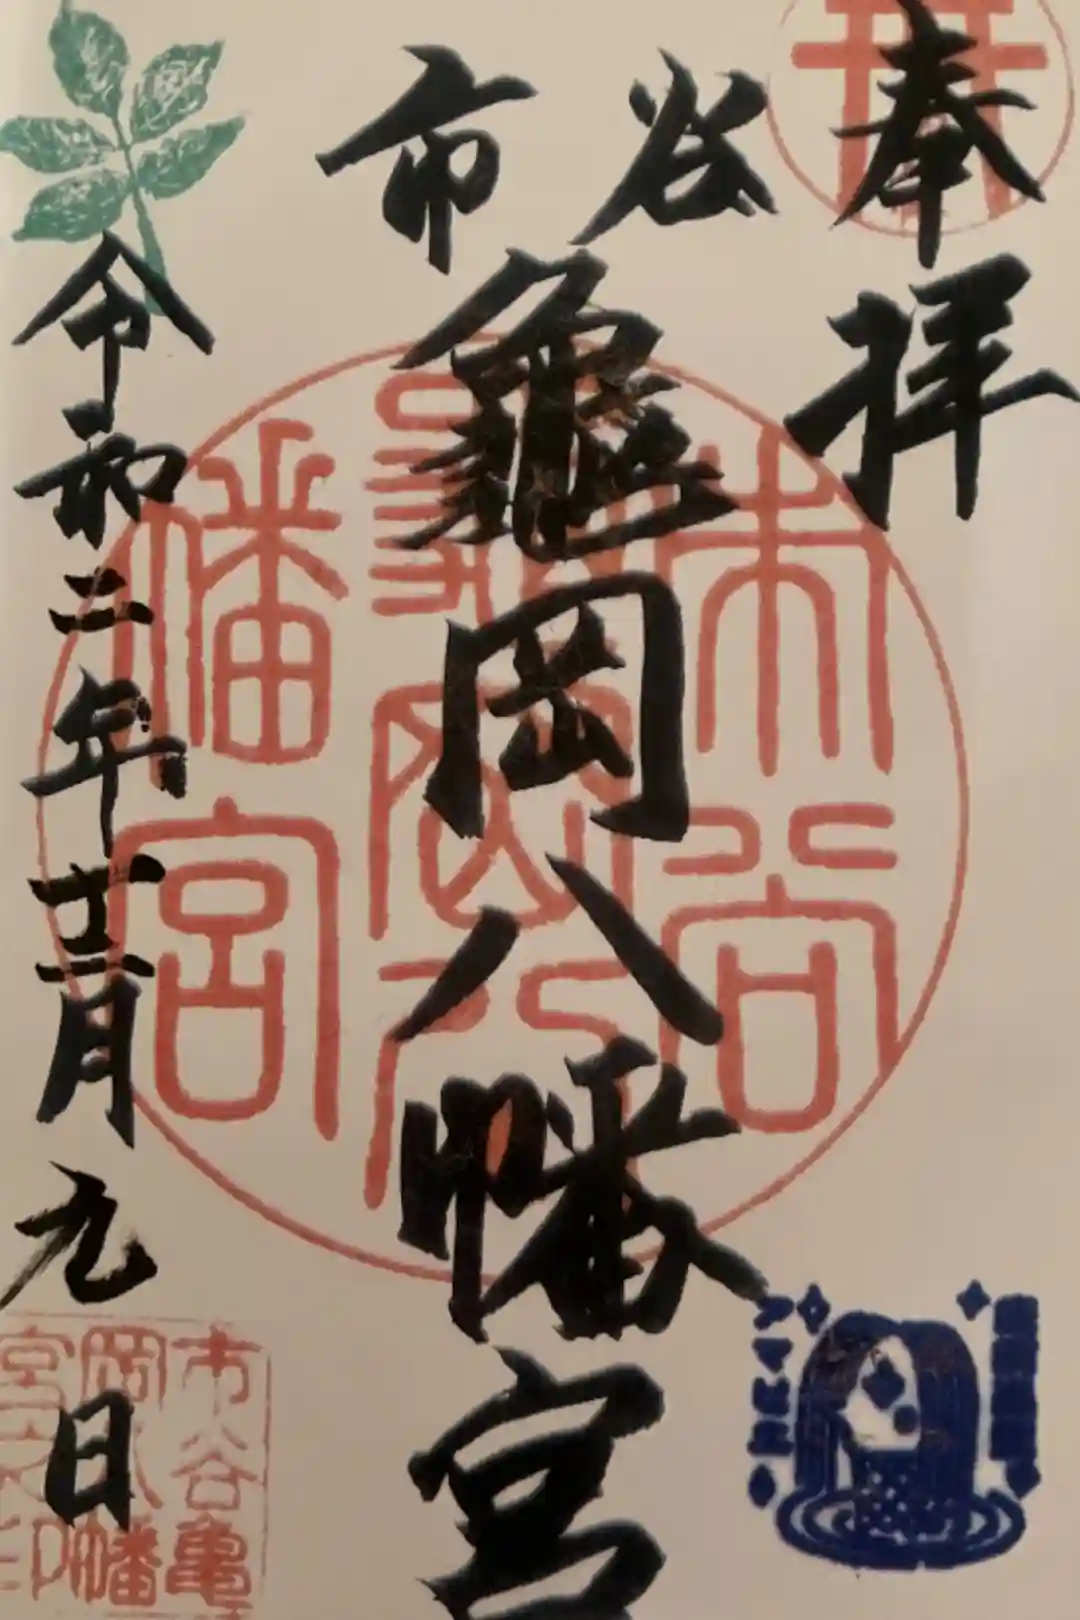 奉拝
市谷
龜岡八幡宮
令和二年十二月九日
市谷
龜岡八
幡宮
市谷亀
岡八幡
宮之印